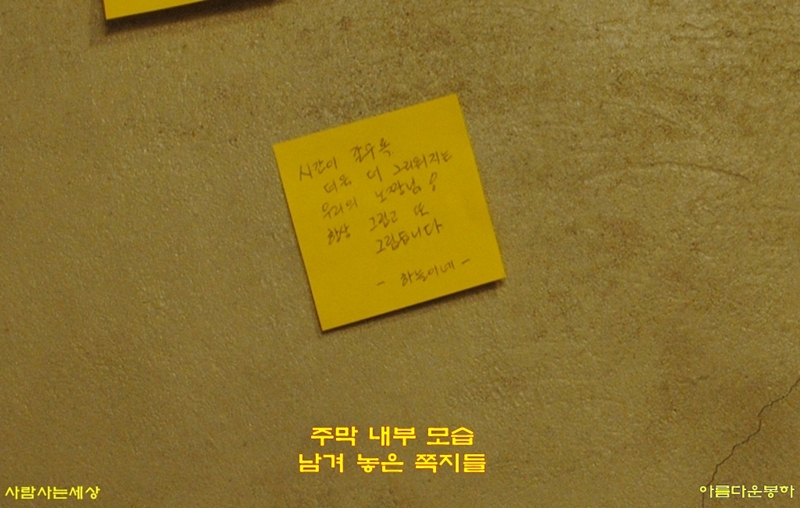 시간이 갈수록
더욱 더 그리워지는
우리의 노짱님!
항상 그립고 또
그립습니다
- 하늘이네 -
주막 내부 모습
남겨 놓은 쪽지들
사람사는세상
아름다운봉하